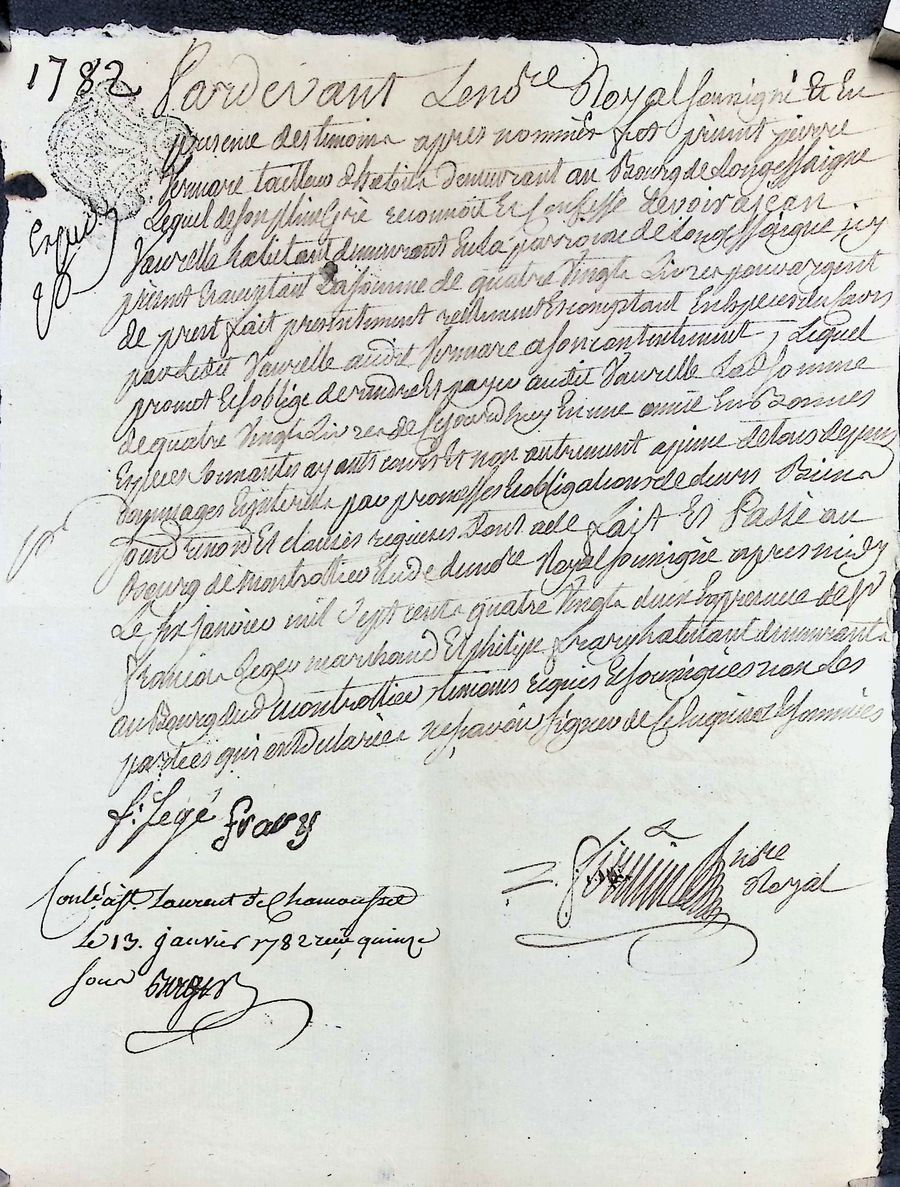 1782
Pardevant Lenore Royal Soussigné Et En
presence des temoins apres nommés fut present pierre
Vermare tailleur dhabits demeurant au Bourg de Longessaigne
Lequel de son plein Gré reconnoit Et Confesse devoir a jean
Vaurelle habitant demeurant En la parroisse de longessaigne icy
present Et aceptant La somme de quatre Vingts Livres pour argent
de prest fait presentement reellement Et comptant En Especes du Cours
par Ledit Vaurelle audit Vermare a son contentement, Lequel
promet Et soblige de rendre Et payer audit Vaurelle Lad somme
de quatre Vingts Livres de ce jourdhuy En une année En Bonnes
Especes Sonnantes ayants cours Et non autrement a peine de tous depens
dommages Enterets par promesses Et obligations de Biens
Et clauses requises Dont acte Fait Et Passé au
Bourg de Montrottier Etude dudre Royal Soussigné apres midy
Le six janvier mil Sept cents quatre Vingts deux En presence de sr
francois Legey marchand Et philipe frary habitant demeurants
au Bourg dud Montrottier, temoins requis Et soussignés non les
parties qui ont declarées ne sçavoir signer de Ce Enquises Et sommées
Expedié
f. Legé frary
nore
Royal
Conlé à st. Laurent de Chamousset
Le 13. janvier 1782 reçu quinze
sous